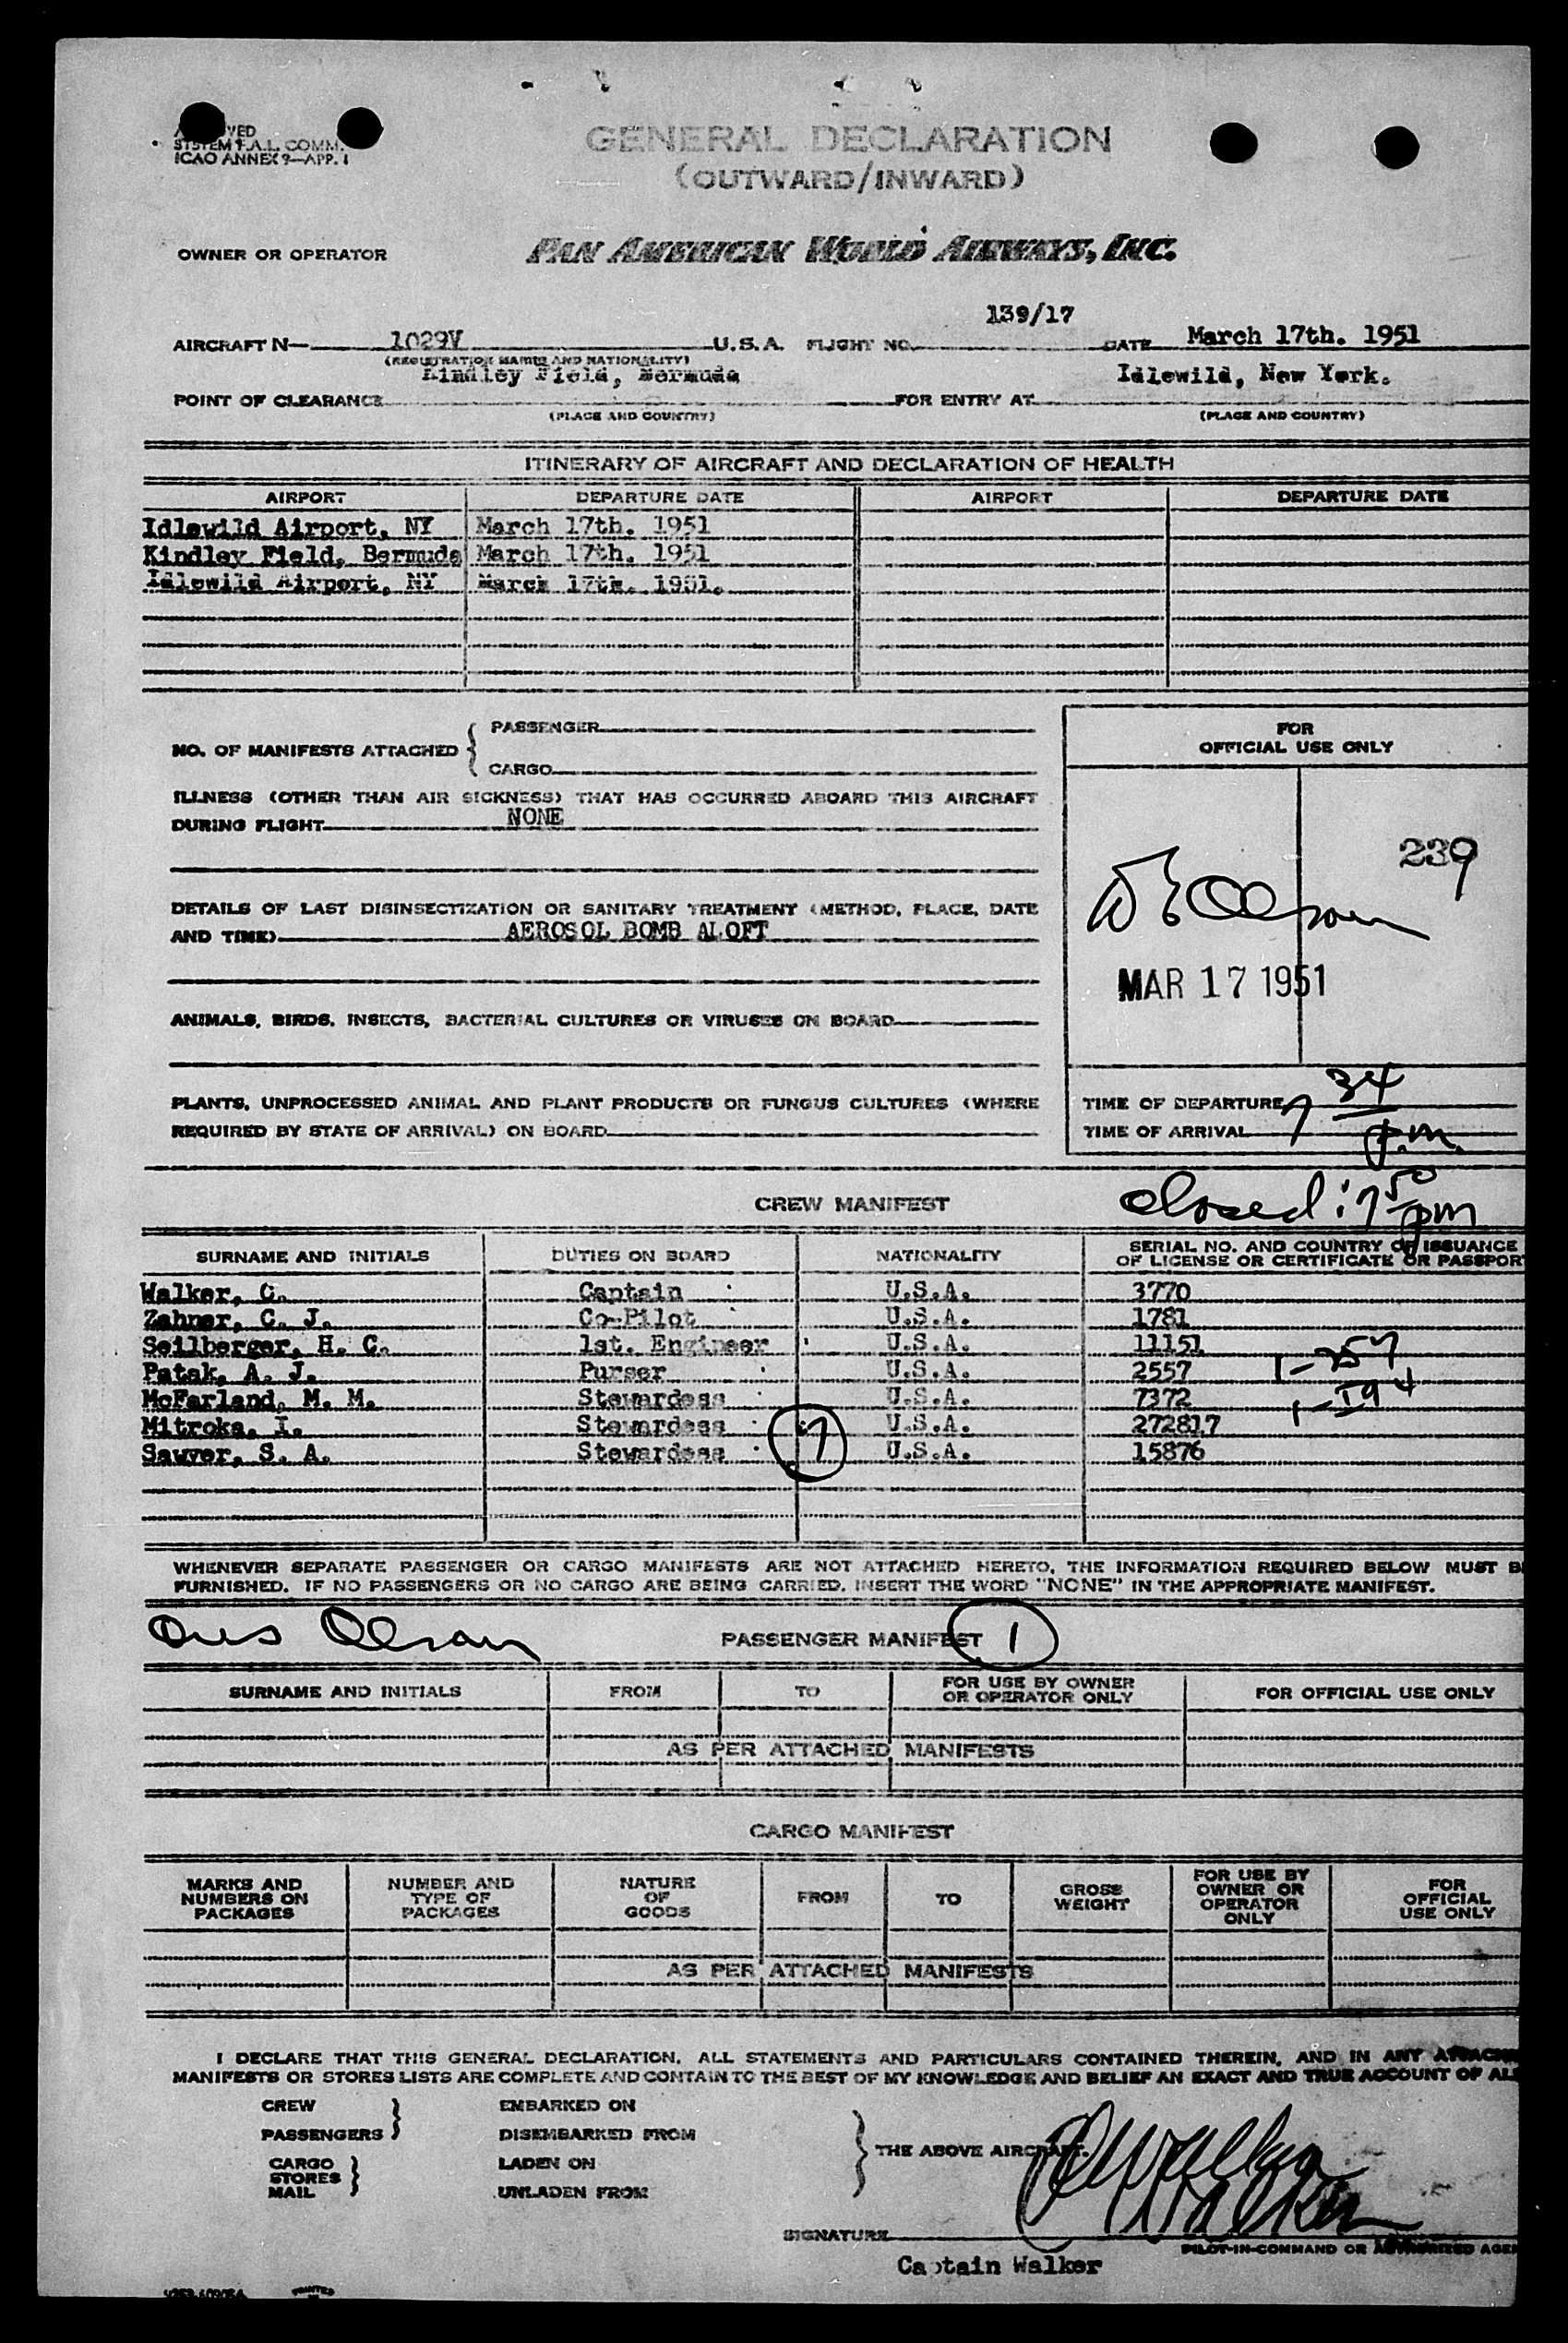 VED
SYSTEM F.A.L. COMM.
ICAO ANNEX 9—APP. 1
GENERAL DECLARATION
(OUTWARD/INWARD)
OWNER OR OPERATOR PAN AMERICAN WORLD AIRWAYS, INC.
139/17
AIRCRAFT N— 1029V U.S.A. FLIGHT NO. DATE March 17th. 1951
(REGISTRATION MARKS AND NATIONALITY)
Kindley Field, Bermuda Idlewild, New York.
POINT OF CLEARANCE FOR ENTRY AT
(PLACE AND COUNTRY) (PLACE AND COUNTRY)
ITINERARY OF AIRCRAFT AND DECLARATION OF HEALTH
AIRPORT DEPARTURE DATE AIRPORT DEPARTURE DATE
Idlewild Airport, NY March 17th. 1951
Kindley Field, Bermuda March 17th. 1951
Idlewild Airport, NY March 17th. 1951.
NO. OF MANIFESTS ATTACHED { PASSENGER
CARGO
FOR
OFFICIAL USE ONLY
ILLNESS (OTHER THAN AIR SICKNESS) THAT HAS OCCURRED ABOARD THIS AIRCRAFT
DURING FLIGHT NONE
239
DETAILS OF LAST DISINSECTIZATION OR SANITARY TREATMENT (METHOD, PLACE, DATE
AND TIME) AEROSOL BOMB ALOFT
MAR 17 1951
ANIMALS, BIRDS, INSECTS, BACTERIAL CULTURES OR VIRUSES ON BOARD
PLANTS, UNPROCESSED ANIMAL AND PLANT PRODUCTS OR FUNGUS CULTURES (WHERE
REQUIRED BY STATE OF ARRIVAL) ON BOARD
TIME OF DEPARTURE
TIME OF ARRIVAL 7 34 p.m.
closed: 7 50 pm
CREW MANIFEST
SURNAME AND INITIALS DUTIES ON BOARD NATIONALITY SERIAL NO. AND COUNTRY OF ISSUANCE
OF LICENSE OR CERTIFICATE OR PASSPORT
Walker, C. Captain U.S.A. 3770
Zahner, C. J. Co-Pilot U.S.A. 1781
Seilberger, H. C. 1st. Engineer U.S.A. 11151
Patak, A. J. Purser U.S.A. 2557
McFarland, M. M. Stewardess U.S.A. 7372
Mitroka, I. Stewardess U.S.A. 272817
Sawyer, S. A. Stewardess 7 U.S.A. 15876
WHENEVER SEPARATE PASSENGER OR CARGO MANIFESTS ARE NOT ATTACHED HERETO, THE INFORMATION REQUIRED BELOW MUST B
FURNISHED. IF NO PASSENGERS OR NO CARGO ARE BEING CARRIED, INSERT THE WORD "NONE" IN THE APPROPRIATE MANIFEST.
PASSENGER MANIFEST 1
SURNAME AND INITIALS FROM TO FOR USE BY OWNER
OR OPERATOR ONLY FOR OFFICIAL USE ONLY
AS PER ATTACHED MANIFESTS
CARGO MANIFEST
MARKS AND
NUMBERS ON
PACKAGES
NUMBER AND
TYPE OF
PACKAGES
NATURE
OF
GOODS
FROM
TO
GROSS
WEIGHT
FOR USE BY
OWNER OR
OPERATOR
ONLY
FOR
OFFICIAL
USE ONLY
AS PER ATTACHED MANIFESTS
I DECLARE THAT THIS GENERAL DECLARATION, ALL STATEMENTS AND PARTICULARS CONTAINED THEREIN, AND IN ANY ATTACH
MANIFESTS OR STORES LISTS ARE COMPLETE AND CONTAIN TO THE BEST OF MY KNOWLEDGE AND BELIEF AN EXACT AND TRUE ACCOUNT OF AL
CREW EMBARKED ON
PASSENGERS DISEMBARKED FROM
THE ABOVE AIRCRAFT.
CARGO LADEN ON
STORES
MAIL UNLADEN FROM
SIGNATURE
PILOT-IN-COMMAND OR AUTHORIZED AGEN
Captain Walker
PRINTED